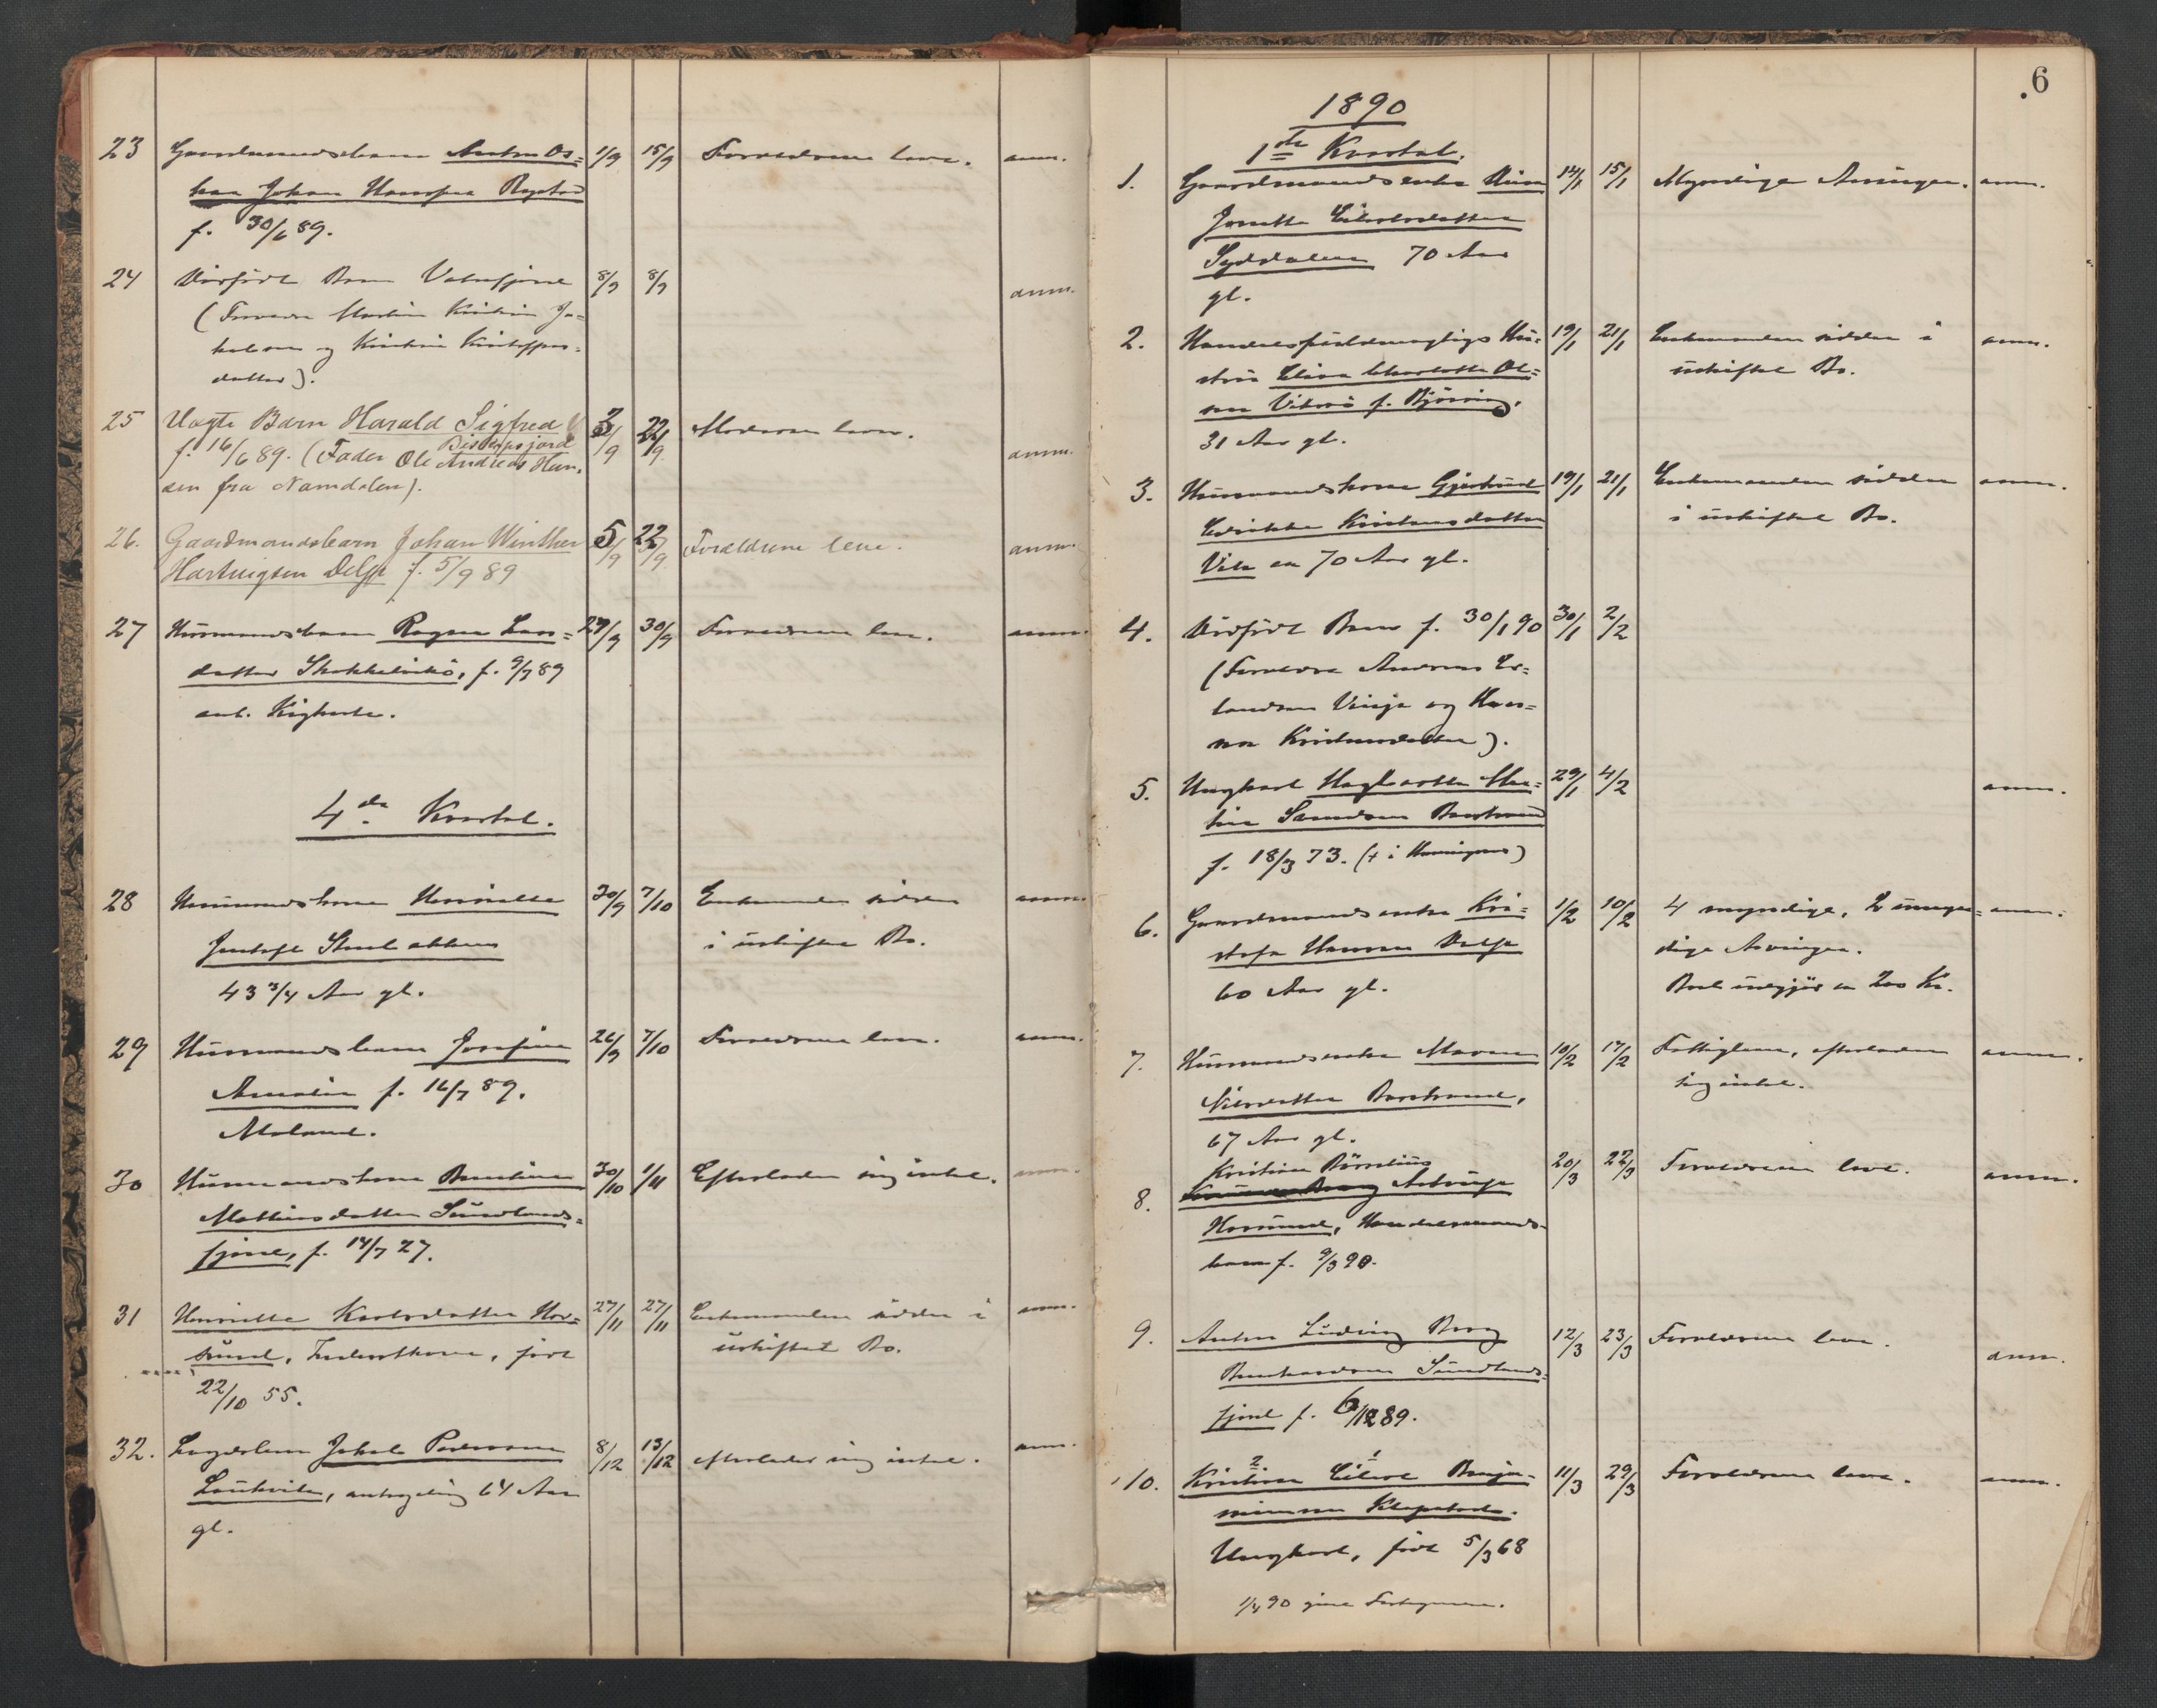 23 Gaardmandsbarn Anton Os= 1/9 15/9 Forældrene leve. anm.
kar Johan Hansen
f. 30/6 89.
24 Dødfødt Barn Vatnfjord 8/9 8/9 anm.
(Forældre Martin Kristian Ja=
kobsen og Kristine Kristoffers=
datter).
25 Uægte Barn Harald Sigfred 3/9 22/9 Moderen lever. anm.
Biskopsjord
f. 16/6 89. (Fader Ole Andreas Han=
sen fra Namdalen).
26. Gaardmandsbarn Johan Winther 5/9 22/9 Forældrene leve. anm.
Hartvigsen Delp f. 5/9 89
27 Husmandsbarn Ragna Lars= 29/9 30/9 Forældrene leve. anm.
datter f. 9/7 89
anb. Kighoste.
4de Kvartal.
28 Husmandskone Henriette 30/9 7/10 Enkemanden sidder anm.
Jentoft
i uskiftet Bo.
43 3/4 Aar gl.
29 Husmandsbarn Josefine 26/9 7/10 Forældrene leve. anm.
Amalie f. 16/7 89.
Moland.
30 Husmandskone 30/10 1/11 Efterlader sig intet. anm.
Mathiasdatter Sundlands=
fjord, f. 14/7 27.
31 Henriette Karlsdatter Hor= 27/11 27/11 Enkemanden sidder i anm.
sund, Inderstkone, født
uskiftet Bo.
22/10 55.
32. Lægdslem Jakob Pedersen 8/12 13/12 efterlader sig intet. anm.
Laukvik, antagelig 64 Aar
gl.
6
1890
1ste Kvartal.
1. Gaardmandsenke 14/1 15/1 Myndige Arvinger. anm.
Jonette Eilertsdatter
Syddalen 70 Aar
gl.
2. Handelsfuldmægtigs Hu= 19/1 21/1 Enkemanden sidder i anm.
stru Elina Charlotte Ol=
uskiftet Bo.
sen f.
31 Aar gl.
3. Husmandskone Gjertrud 19/1 21/1 Enkemanden sidder anm.
Kristensdatter
i uskiftet Bo.
Vik ca 70 Aar gl.
4. Dødfødt Barn f. 30/1 90 30/1 2/2
(Forældre Andreas Er=
landsen Vinje og Han=
na Kristensdatter).
5. Ungkarl Hagbarth Mar= 29/1 4/2 anm.
tin
f. 18/3 73. (+ i Henningsvær)
6. Gaardmandsenke Kri= 1/2 10/2 4 myndige, 2 umyn= anm.
stofa Hansen Delp
dige Arvinger.
60 Aar gl.
Boet udgjør ca 200 Kr.
7. Husmandsenke Maren 10/2 17/2 Fattiglem, efterlader anm.
Nilsdatter
sig intet.
67 Aar gl.
8. Kristian 20/3 22/3 Forældrene leve. anm.
Horsund, Handelsmands=
barn f. 9/3 90.
9. Anton Ludvig Berg 12/3 23/3 Forældrene leve. anm.
Sundlands=
fjord f. 6/12 89.
10. Kristian Eilert Benja= 11/3 29/3 Forældrene leve. anm.
minsen
Ungkarl, født 5/3 68
1/4 90